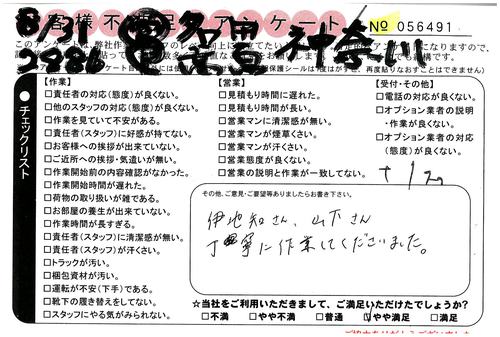 お客様不満足アンケート
No 056491
8/31
2286
神奈川
チェックリスト
【作業】
□責任者の対応(態度)が良くない。
□他のスタッフの対応(態度)が良くない。
□作業を見ていて不安がある。
□責任者(スタッフ)に好感が持てない。
□お客様への挨拶が出来ていない。
□ご近所への挨拶・気遣いが無い。
□作業開始前の内容確認がなかった。
□作業開始時間が遅れた。
□荷物の取り扱いが雑である。
□お部屋の養生が出来ていない。
□作業時間が長すぎる。
□責任者(スタッフ)に清潔感が無い。
□責任者(スタッフ)が汗くさい。
□トラックが汚い。
□梱包資材が汚い。
□運転が不安(下手)である。
□靴下の履き替えをしてない。
□スタッフにやる気がみられない。
【営業】
□見積もり時間に遅れた。
□見積もり時間が長い。
□営業マンに清潔感が無い。
□営業マンが煙草くさい。
□営業マンが汗くさい。
□営業態度が良くない。
□営業の説明と作業が一致してない。
【受付・その他】
□電話の対応が良くない。
□オプション業者の説明
・作業が良くない。
□オプション業者の対応
(態度)が良くない。
その他、ご意見・ご要望等ありましたらお書き下さい。
伊地知さん、山下さん
丁寧に作業してくださいました。
☆当社をご利用いただきまして、ご満足いただけたでしょうか?
□不満 □やや不満 □普通 □やや満足 □満足